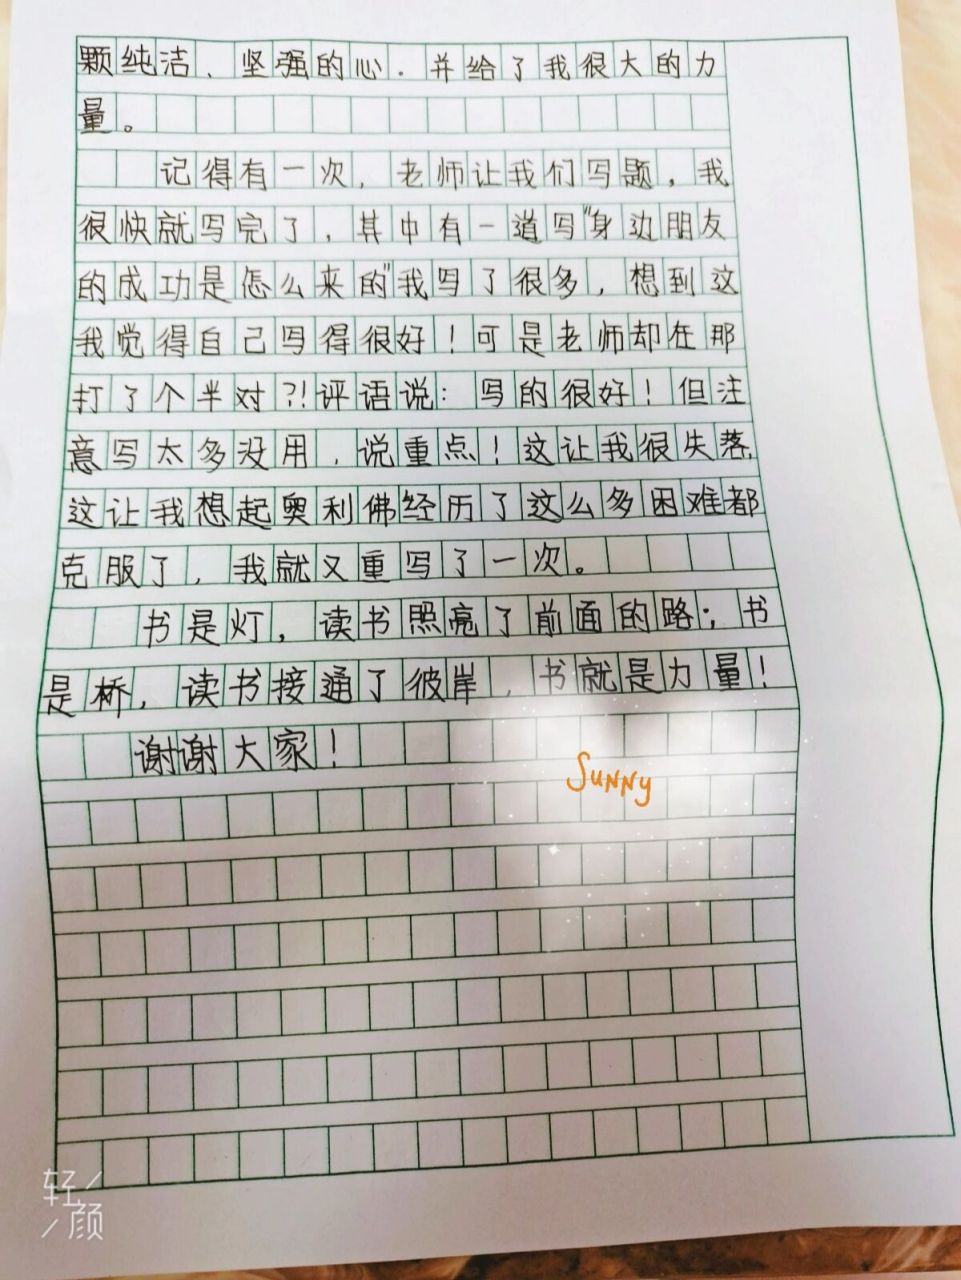 颗纯洁、坚强的心.并给了我很大的力
量。
记得有一次,老师让我们写题,我
很快就写完了,其中有一道写"身边朋友
的成功是怎么来的"我写了很多,想到这
我觉得自己写得很好!可是老师却在那
打了个半对?!评语说:写的很好!但注
意写太多没用,说重点!这让我很失落,
这让我想起奥利佛经历了这么多困难都
克服了,我就又重写了一次。
书是灯,读书照亮了前面的路;书
是桥,读书接通了彼岸,书就是力量!
谢谢大家!
Sunny
轻颜